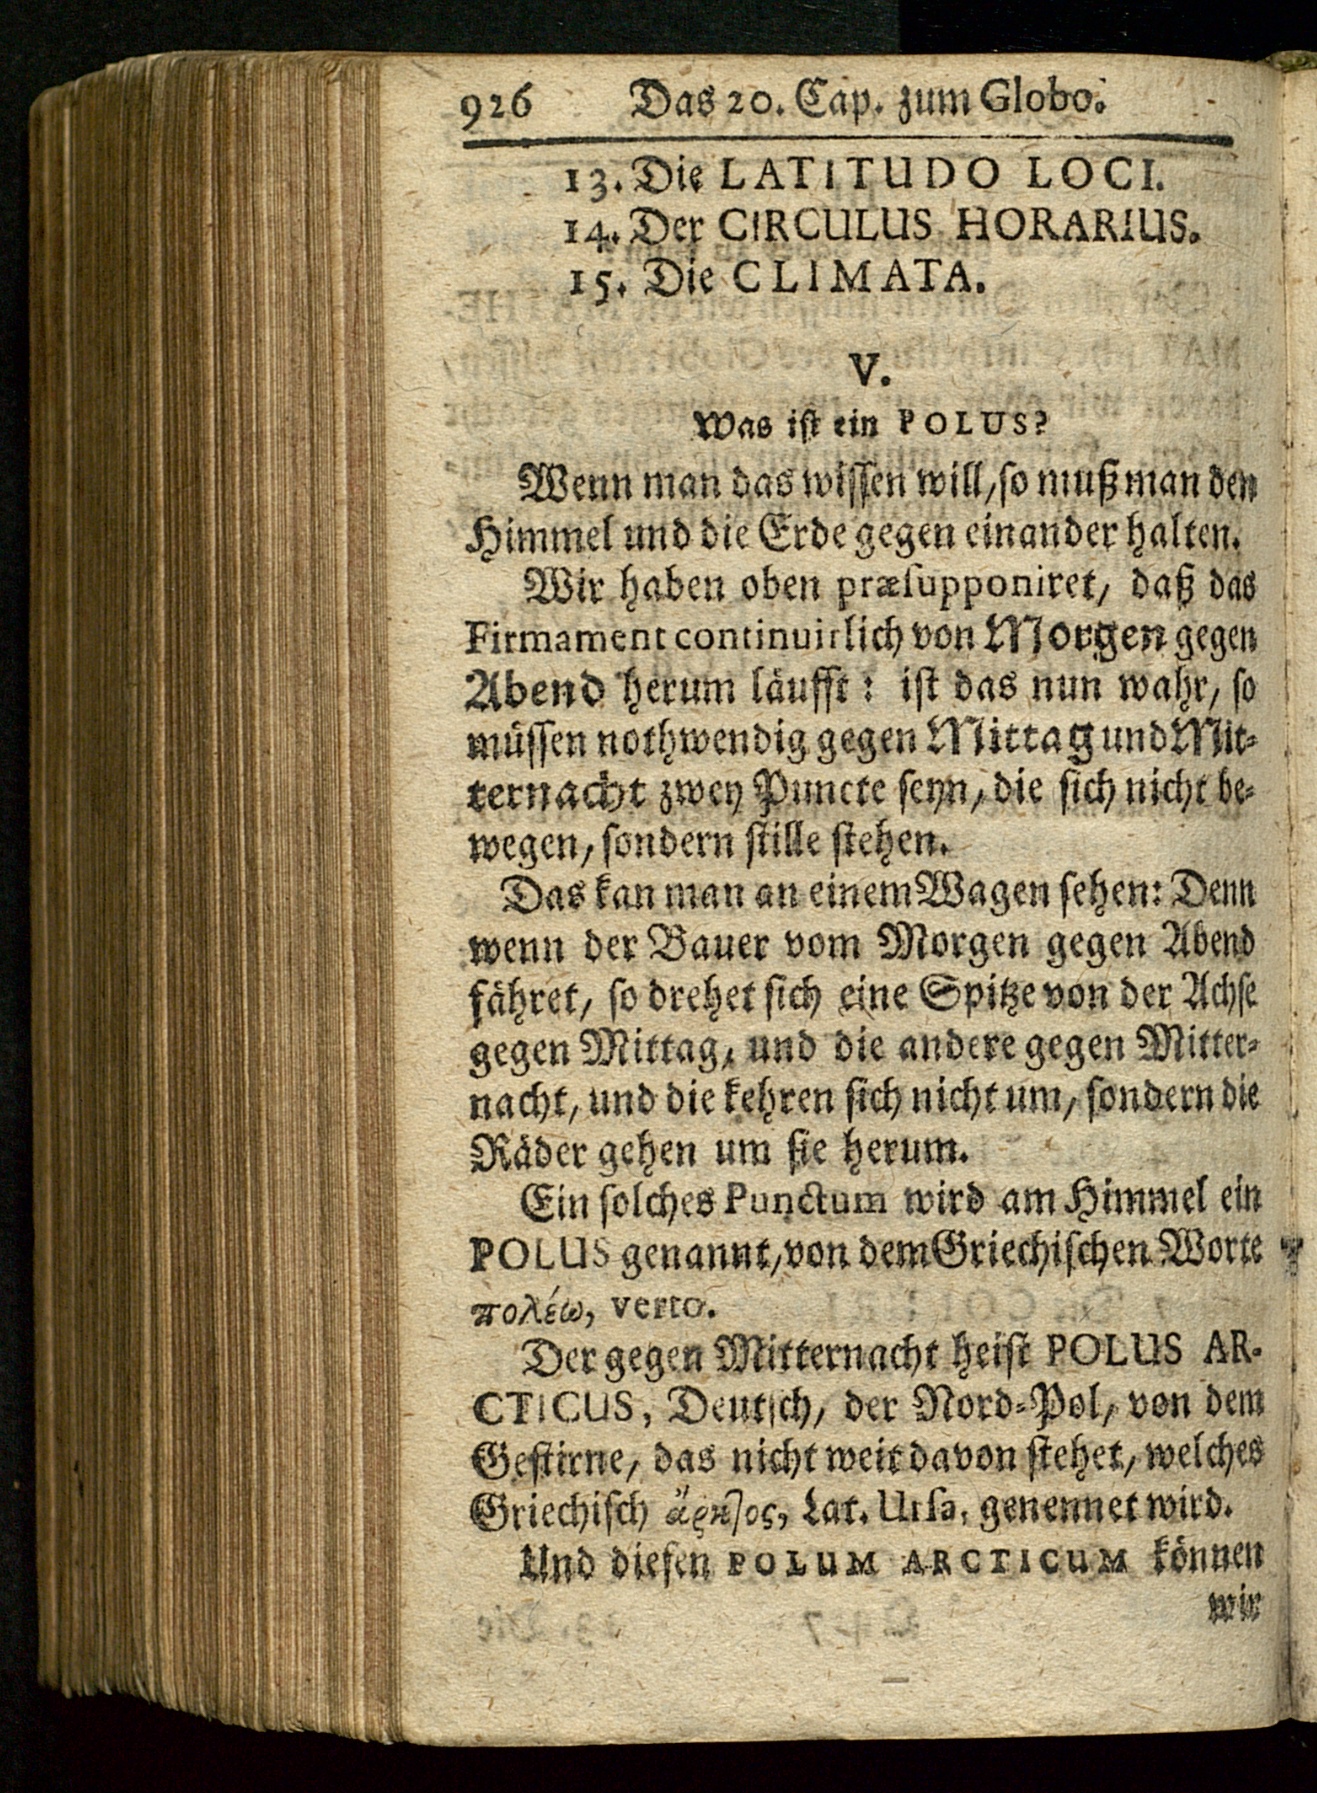 926 Das 20. Cap. zum Globo.
13. Die LATITUDO LOCI.
14. Der CIRCULUS HORARIUS.
15. Die CLIMATA.
V.
Was ist ein POLUS?
Wenn man das wissen will, so muß man den
Himmel und die Erde gegen einander halten.
Wir haben oben præsupponiret, daß das
Firmament continuirlich von Morgen gegen
Abend herum läufft: ist das nun wahr, so
müssen nothwendig gegen Mittag und Mit-
ternacht zwey Puncte seyn, die sich nicht be-
wegen, sondern stille stehen.
Das kan man an einem Wagen sehen: Denn
wenn der Bauer vom Morgen gegen Abend
fähret, so drehet sich eine Spitze von der Achse
gegen Mittag, und die andere gegen Mitter-
nacht, und die kehren sich nicht um, sondern die
Räder gehen um sie herum.
Ein solches Punctum wird am Himmel ein
POLUS genannt, von dem Griechischen Worte
πολέω, verto.
Der gegen Mitternacht heist POLUS AR-
CTICUS, Deutsch, der Nord-Pol, von dem
Gestirne, das nicht weit davon stehet, welches
Griechisch ἄρκτος, Lat. Ursa, genennet wird.
Und diesen POLUM ARCTICUM können
wir